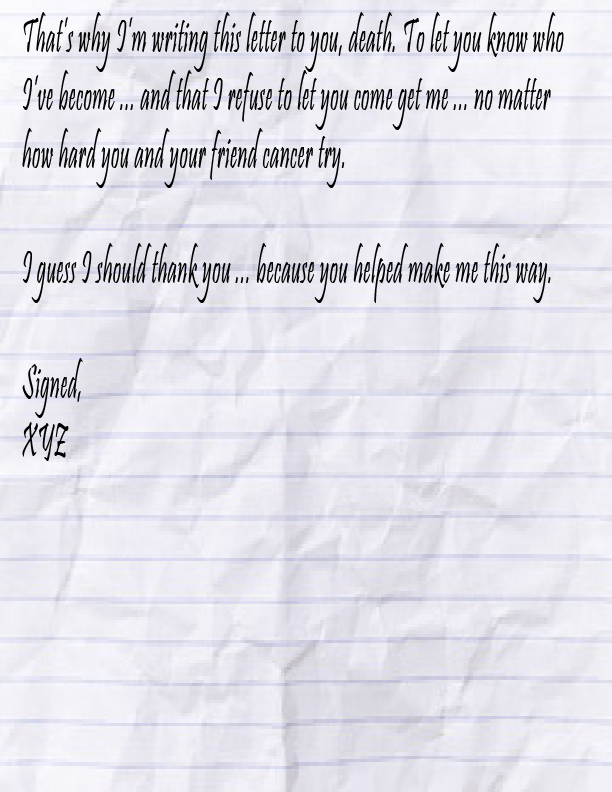 That's why I'm writing this letter to you, death. To let you know who
I've become ... and that I refuse to let you come get me ... no matter
how hard you and your friend cancer try.
I guess I should thank you ... because you helped make me this way.
Signed,
XYZ